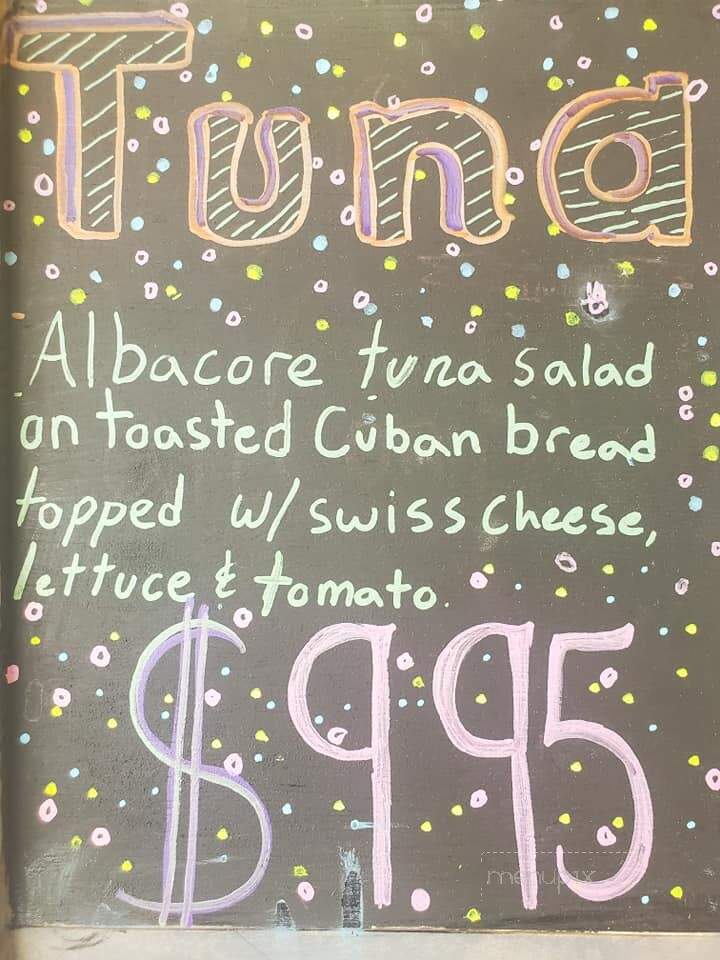 Tuna
Albacore tuna salad
on toasted Cuban bread
topped w/ swiss cheese,
lettuce & tomato.
$9.95
menupix